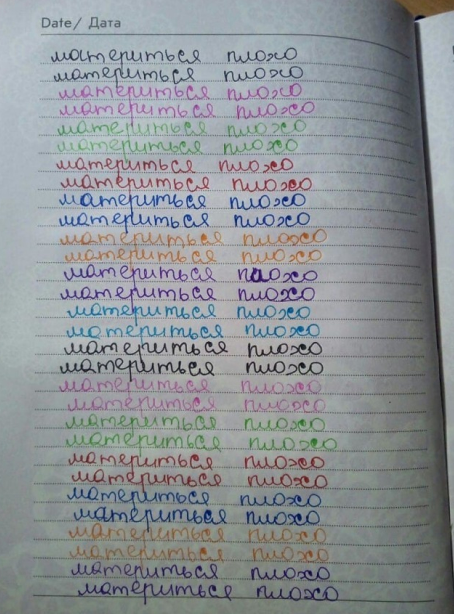 Date/ Дата
материться плохо
материться плохо
материться плохо
материться плохо
материться плохо
материться плохо
материться плохо
материться плохо
материться плохо
материться плохо
материться плохо
материться плохо
материться плохо
материться плохо
материться плохо
материться плохо
материться плохо
материться плохо
материться плохо
материться плохо
материться плохо
материться плохо
материться плохо
материться плохо
материться плохо
материться плохо
материться плохо
материться плохо
материться плохо
материться плохо